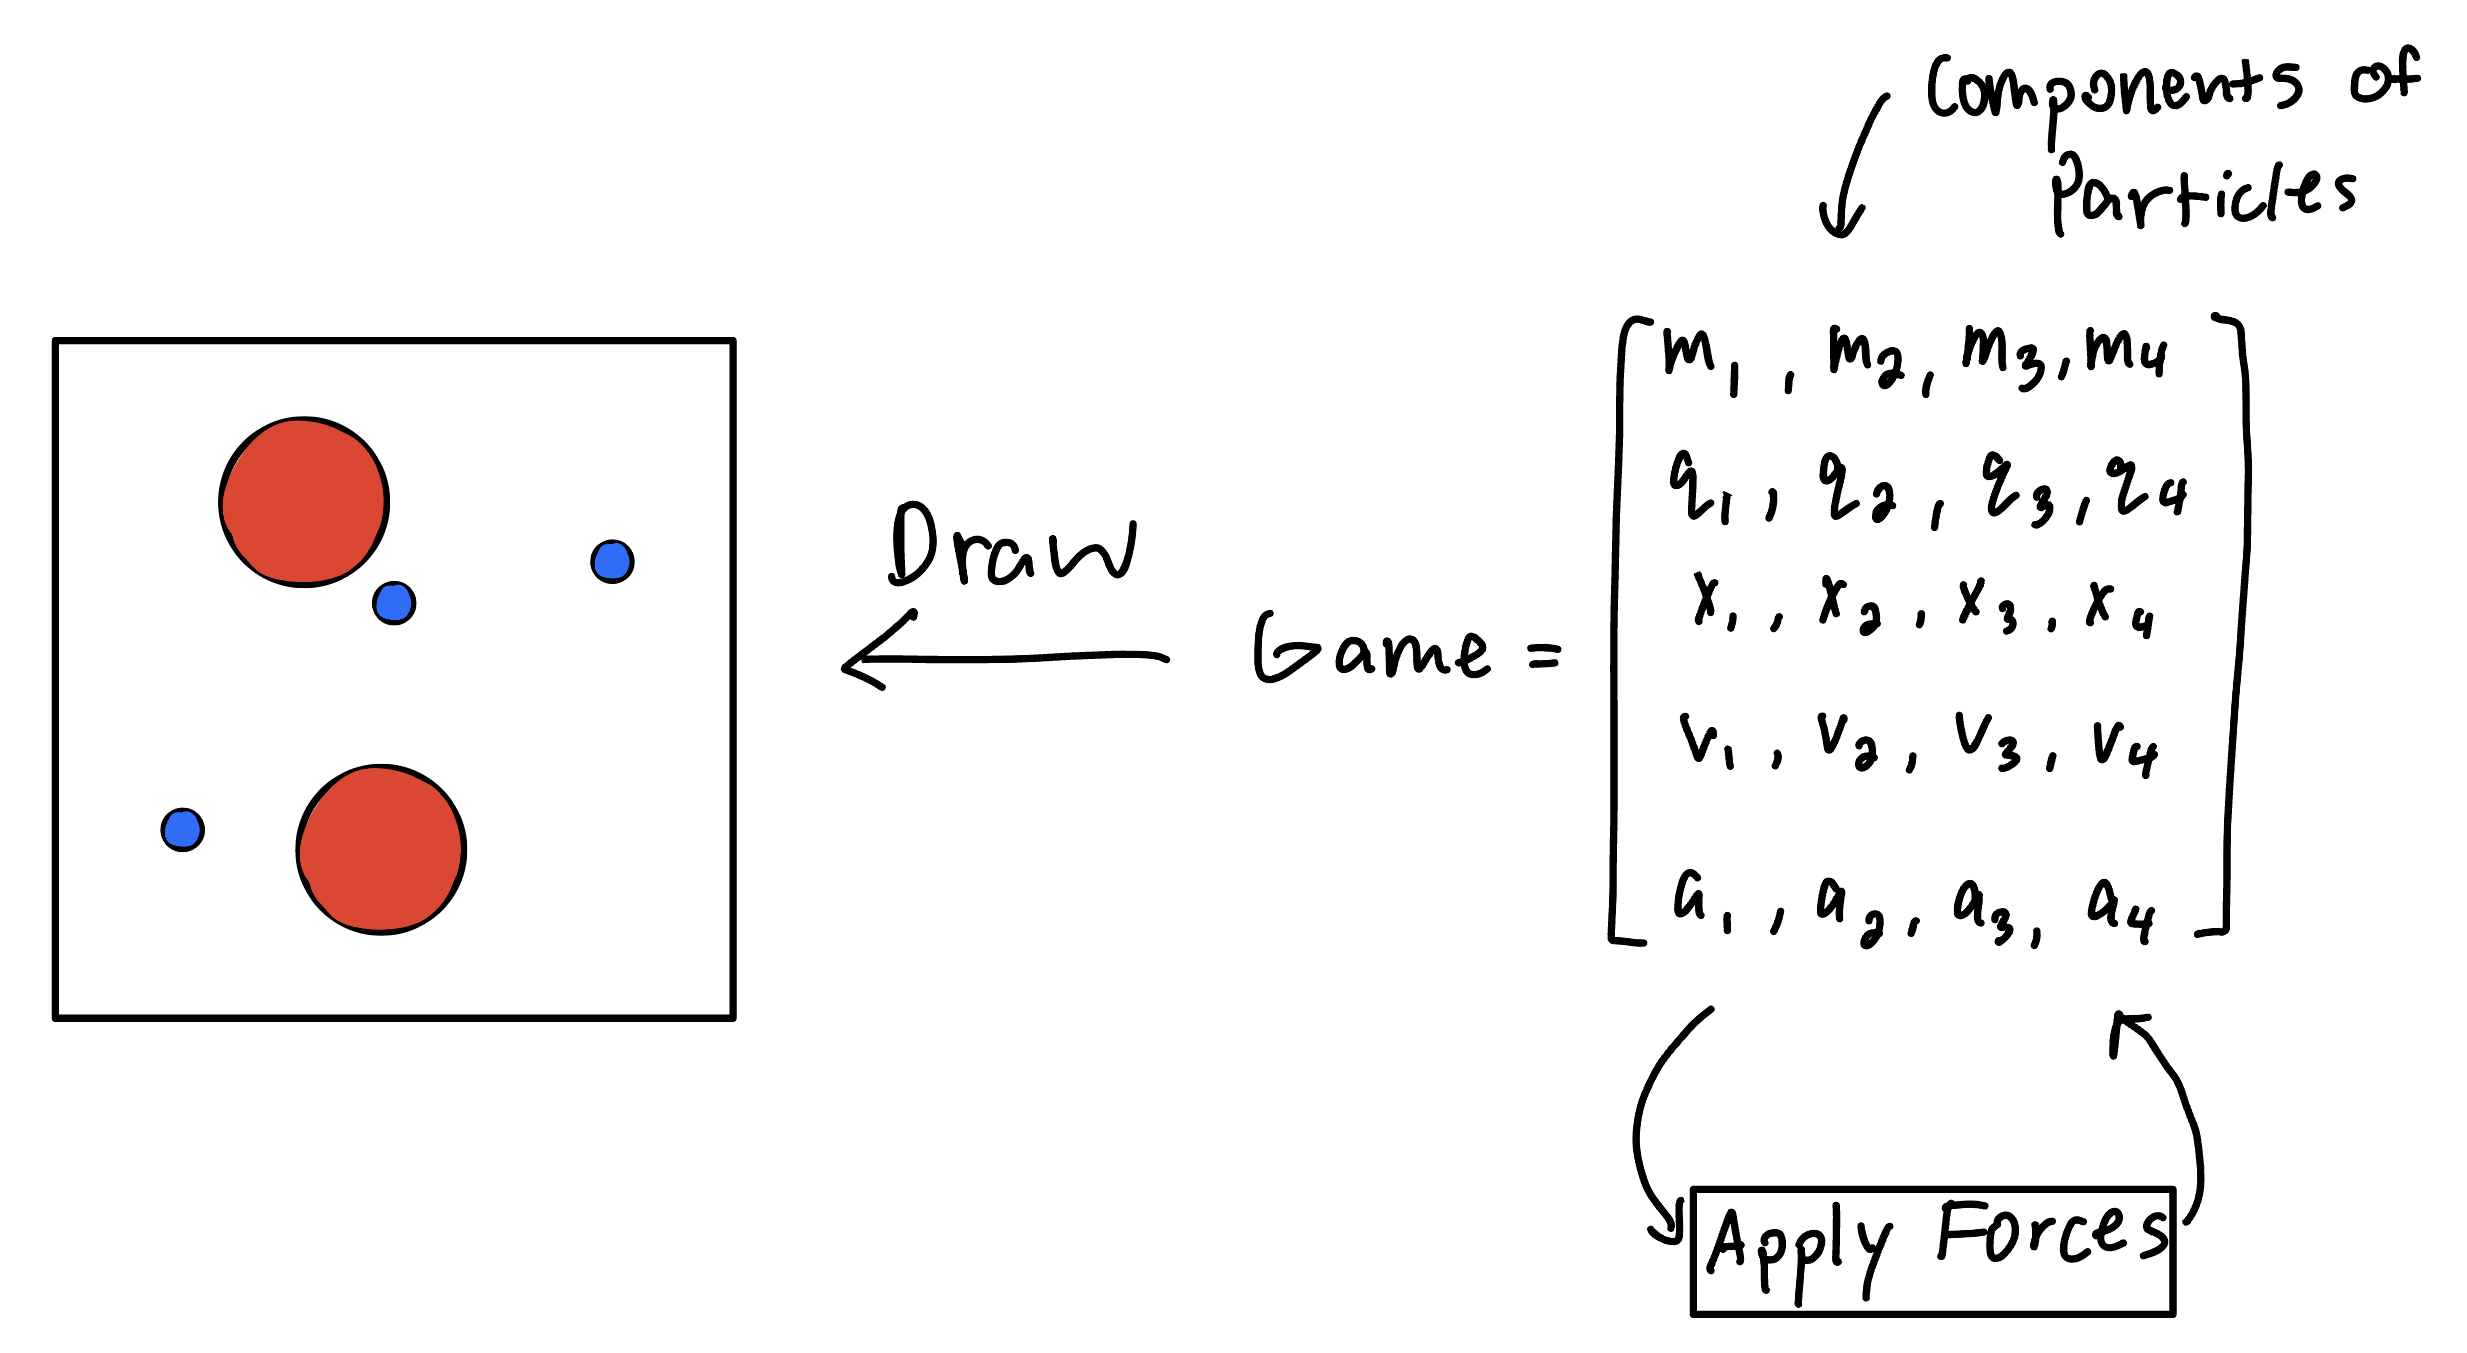 Components of
Particles
m1, m2, m3, m4
q1, q2, q3, q4
x1, x2, x3, x4
Draw
Game =
v1, v2, v3, v4
a1, a2, a3, a4
Apply Forces